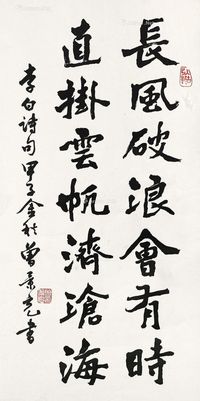 長風破浪會有時
直掛雲帆濟滄海
李白诗句甲子金秋曾景充書